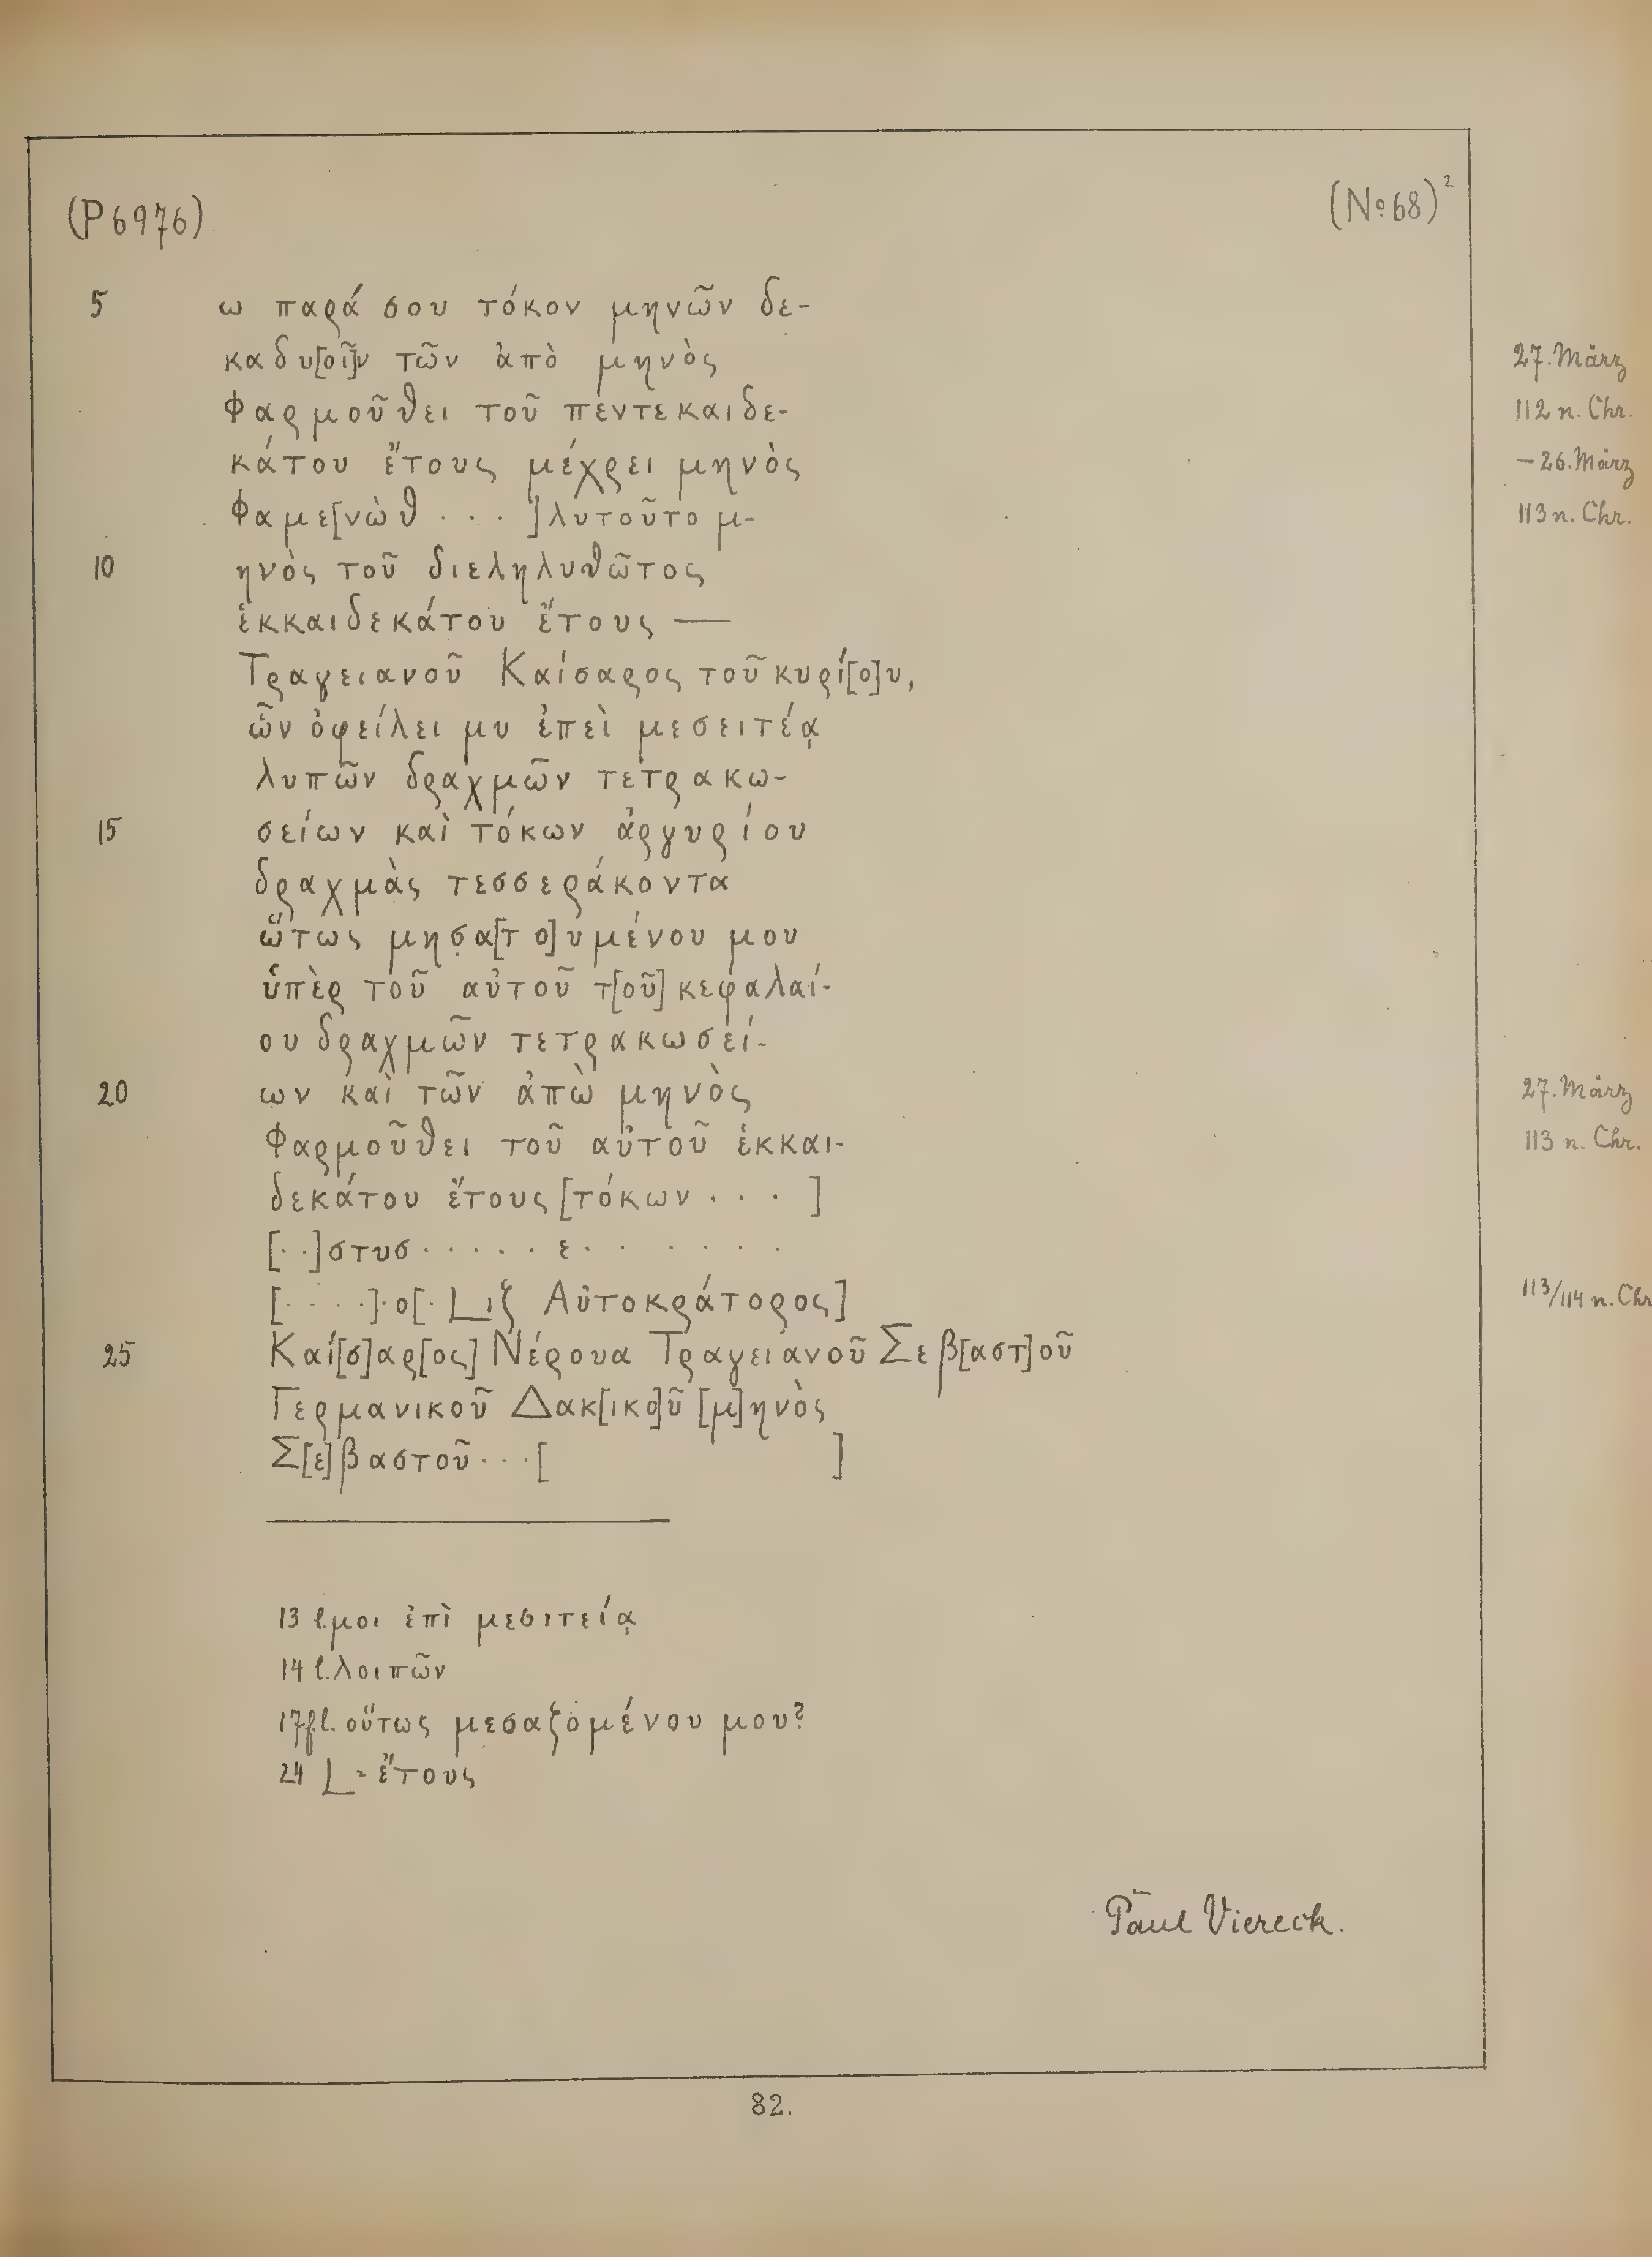 (P 6976) (No 68)²
5 ω παρά σου τόκον μηνῶν δε-
καδυ[οῖ]ν τῶν ἀπὸ μηνὸς 27. März
Φαρμοῦθει τοῦ πεντεκαιδε- 112 n. Chr.
κάτου ἔτους μέχρει μηνὸς – 26. März
Φαμε[νὼθ · · · ]λυτοῦτο μ- 113 n. Chr.
10 ηνὸς τοῦ διεληλυθῶτος
ἑκκαιδεκάτου ἔτους —
Τραγειανοῦ Καίσαρος τοῦ κυρί[ο]υ,
ὧν ὀφείλει μυ ἐπεὶ μεσειτέᾳ
λυπῶν δραχμῶν τετρακω-
15 σείων καὶ τόκων ἀργυρίου
δραχμὰς τεσσεράκοντα
ὥτως μησ̣α[τ ο]υμένου μου
ὑπὲρ τοῦ αὐτοῦ τ[οῦ] κεφαλαί-
ου δραχμῶν τετρακωσεί-
20 ων καὶ τῶν ἀπὼ μηνὸς 27. März
Φαρμοῦθει τοῦ αὐτοῦ ἑκκαι- 113 n. Chr.
δεκάτου ἔτους [τόκων · · · ]
[· ·]στυσ · · · · · ε · · · · · ·
[· · · ·]·ο[· L ιζ Αὐτοκράτορος] 113/114 n. Chr
25 Καί[σ]αρ[ος] Νέρουα Τραγειανοῦ Σεβ[αστ]οῦ
Γερμανικοῦ Δακ[ικο]ῦ [μ]ηνὸς
Σ[ε]βαστοῦ · · · [ ]
13 l. μοι ἐπὶ μεσιτείᾳ
14 l. λοιπῶν
17 f. l. οὕτως μεσαζομένου μου?
24 L = ἔτους
Paul Viereck.
82.